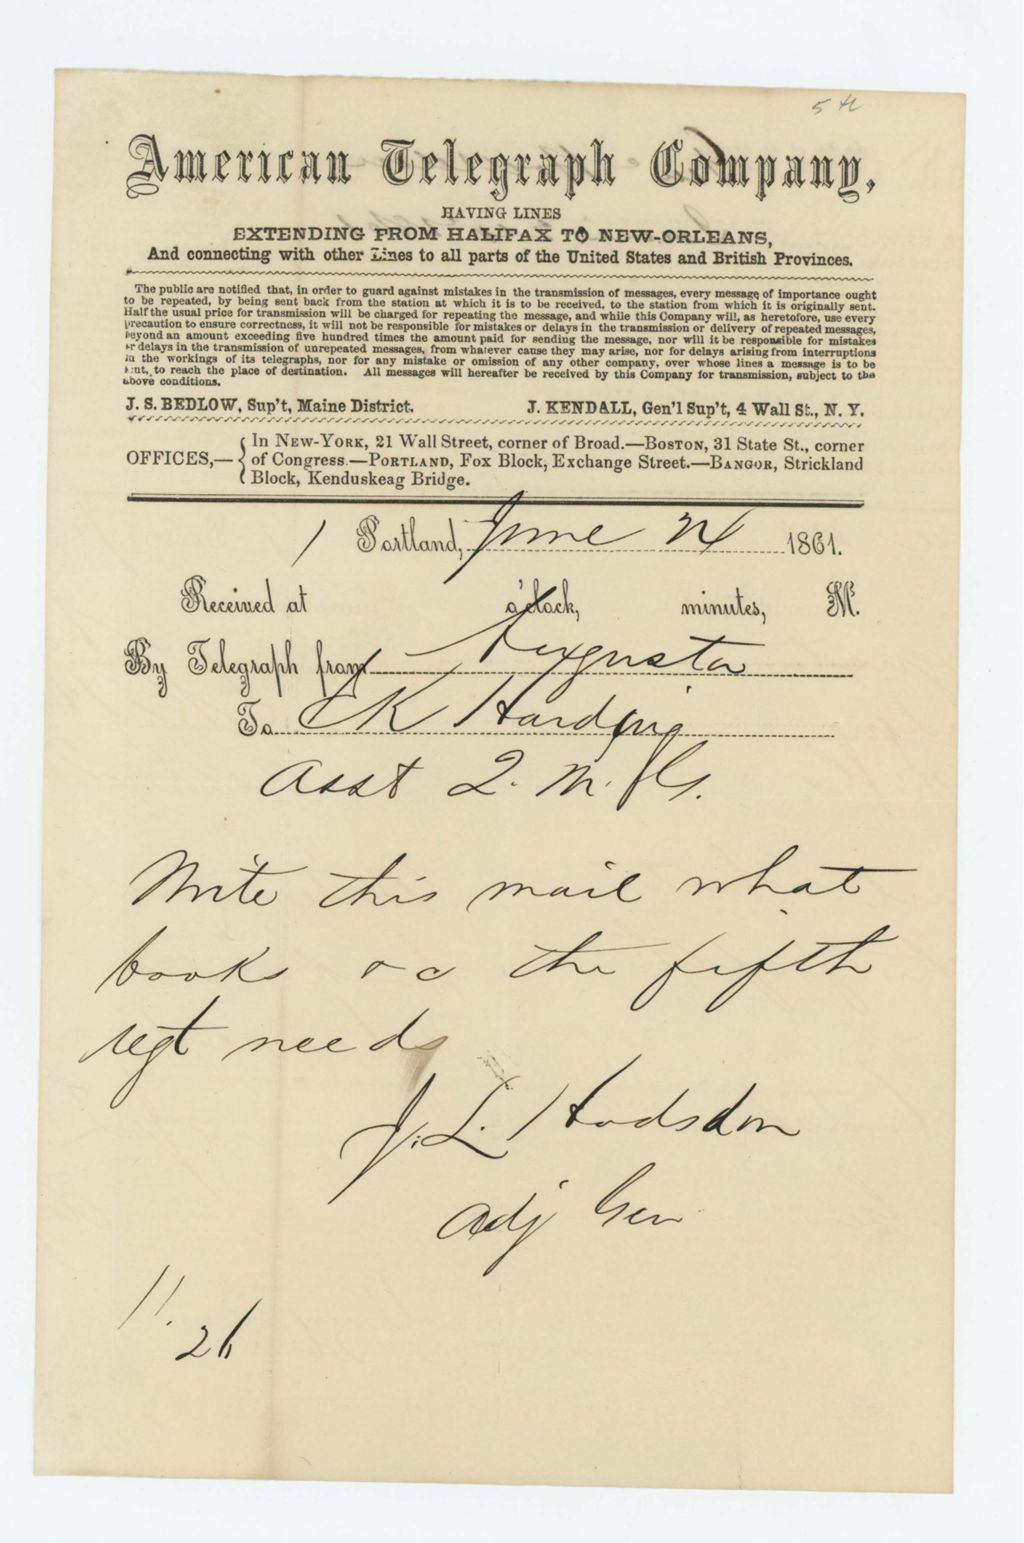 5th
American Telegraph Company,
HAVING LINES
EXTENDING FROM HALIFAX TO NEW-ORLEANS,
And connecting with other Lines to all parts of the United States and British Provinces.
The public are notified that, in order to guard against mistakes in the transmission of messages, every message of importance ought
to be repeated, by being sent back from the station at which it is to be received, to the station from which it is originally sent.
Half the usual price for transmission will be charged for repeating the message, and while this Company will, as heretofore, use every
precaution to ensure correctness, it will not be responsible for mistakes or delays in the transmission or delivery of repeated messages,
beyond an amount exceeding five hundred times the amount paid for sending the message, nor will it be responsible for mistakes
or delays in the transmission of unrepeated messages, from whatever cause they may arise, nor for delays arising from interruptions
in the workings of its telegraphs, nor for any mistake or omission of any other company, over whose lines a message is to be
sent, to reach the place of destination. All messages will hereafter be received by this Company for transmission, subject to the
above conditions.
J. S. BEDLOW, Sup't, Maine District. J. KENDALL, Gen'l Sup't, 4 Wall St., N. Y.
In NEW-YORK, 21 Wall Street, corner of Broad.—BOSTON, 31 State St., corner
OFFICES,— of Congress.—PORTLAND, Fox Block, Exchange Street.—BANGOR, Strickland
Block, Kenduskeag Bridge.
1 Portland, June 24 1861.
Received at o'clock, minutes, M.
By Telegraph from Augusta
To CK Harding
Asst Q. M. G.
Write this mail what
books &c the fifth
regt needs
J. L. Hodsdon
Adj Gen
11.
26